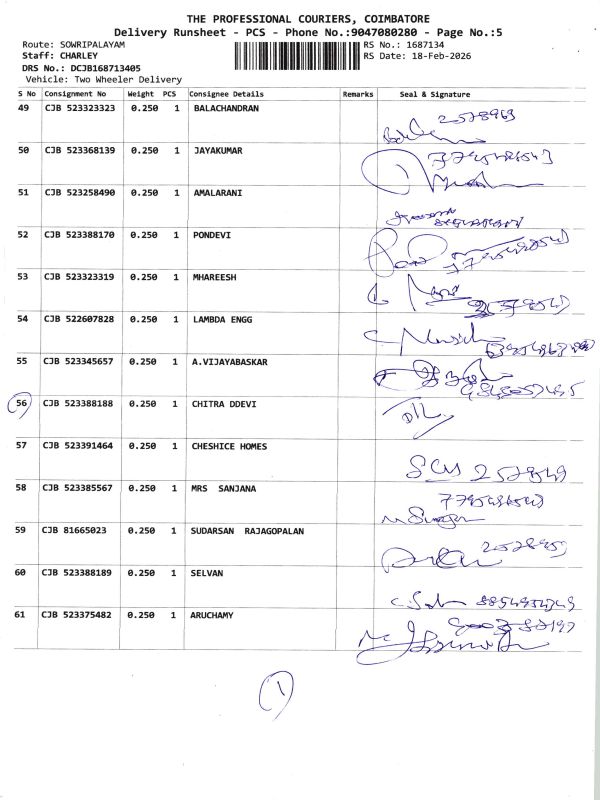 THE PROFESSIONAL COURIERS, COIMBATORE
Delivery Runsheet - PCS - Phone No.:9047080280 - Page No.:5
Route: SOWRIPALAYAM
RS No.: 1687134
Staff: CHARLEY
RS Date: 18-Feb-2026
DRS No.: DCJB168713405
Vehicle: Two Wheeler Delivery
S No Consignment No Weight PCS Consignee Details Remarks Seal & Signature
49 CJB 523323323 0.250 1 BALACHANDRAN
50 CJB 523368139 0.250 1 JAYAKUMAR
51 CJB 523258490 0.250 1 AMALARANI
52 CJB 523388170 0.250 1 PONDEVI
53 CJB 523323319 0.250 1 MHAREESH
54 CJB 522607828 0.250 1 LAMBDA ENGG
55 CJB 523345657 0.250 1 A.VIJAYABASKAR
56 CJB 523388188 0.250 1 CHITRA DDEVI
57 CJB 523391464 0.250 1 CHESHICE HOMES
58 CJB 523385567 0.250 1 MRS SANJANA
59 CJB 81665023 0.250 1 SUDARSAN RAJAGOPALAN
60 CJB 523388189 0.250 1 SELVAN
61 CJB 523375482 0.250 1 ARUCHAMY
1